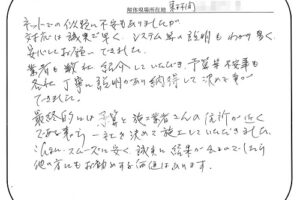 解体現場所在地
ネットでの依頼に不安もありましたが
対応は誠実で早く、システム等の説明もわかり易く、
安心してお願いできました。
業者も数社紹介していただき、予算等不安事も
各社丁寧に説明があり納得して決める事が
できました。
最終的には予算と施工業者さんの住所が近く
である事から一社を決めて施工していただきました。
スムーズに安く、誠実に結果が出るのでしたら
他の方にもお勧めする価値はあります。